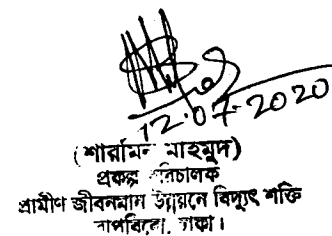 12.07.2020
(শারমিন মাহমুদ)
প্রকল্প পরিচালক
গ্রামীণ জীবনমান উন্নয়নে বিদ্যুৎ শক্তি
বাপবিবো, ঢাকা।